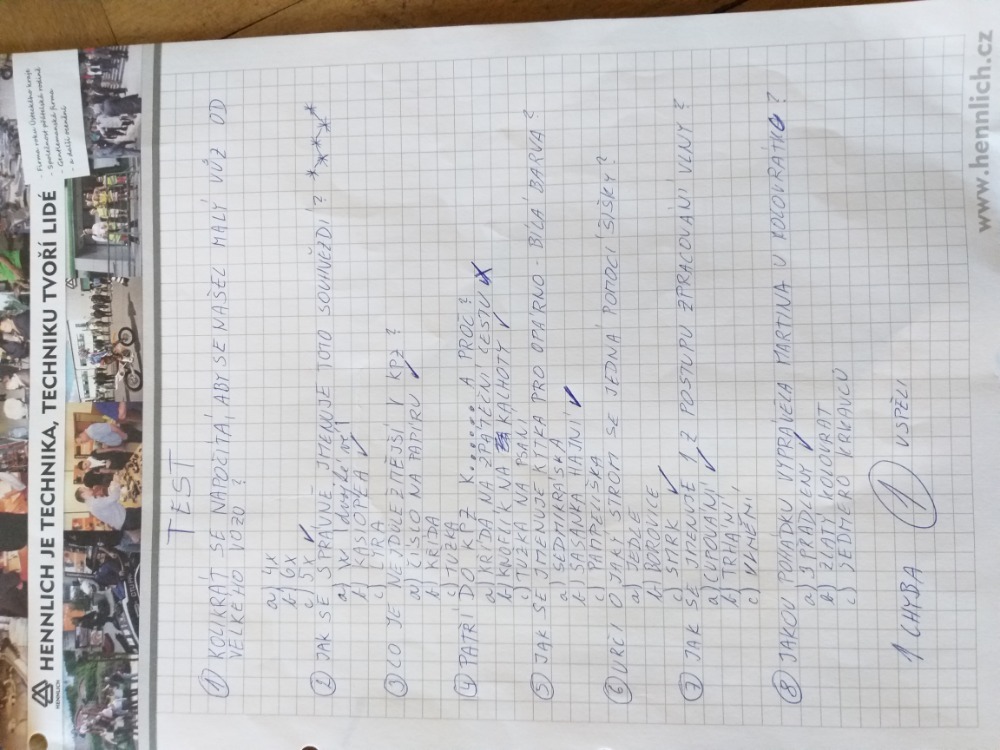 HENNLICH
HENNLICH JE TECHNIKA, TECHNIKU TVOŘÍ LIDÉ
- Firma roku Ústeckého kraje
- Společnost přátelská rodině
- Gentlemanská firma
- a další ocenění
TEST
① KOLIKRÁT SE NAPOČÍTÁ, ABY SE NAŠEL MALÝ VŮZ OD
VELKÉHO VOZU ?
a) 4x
b) 6x
c) 5x ✓
② JAK SE SPRÁVNĚ JMENUJE TOTO SOUHVĚZDÍ ?
a) W
b) KASIOPEA ✓
c) LYRA
③ CO JE NEJDŮLEŽITĚJŠÍ V KPZ ?
a) ČÍSLO NA PAPÍRU ✓
b) KŘÍDA
c) TUŽKA
④ PATŘÍ DO KPZ K....... A PROČ ?
a) KŘÍDA NA ZPÁTEČNÍ CESTU x
b) KNOFLÍK NA KALHOTY ✓
c) TUŽKA NA PSANÍ
⑤ JAK SE JMENUJE KYTKA PRO OPÁRNO - BÍLÁ BARVA ?
a) SEDMIKRÁSKA
b) SASANKA HAJNÍ ✓
c) PAMPELIŠKA
⑥ URČI O JAKÝ STROM SE JEDNÁ POMOCÍ ŠIŠKY ?
a) JEDLE
b) BOROVICE
c) SMRK ✓
⑦ JAK SE JMENUJE 1 Z POSTUPU ZPRACOVÁNÍ VLNY ?
a) CUPOVÁNÍ ✓
b) TRHÁNÍ
c)
⑧ JAKOU POHÁDKU VYPRÁVĚLA MARTINA U KOLOVRÁTKU ?
a) 3 PŘADLENY ✓
b) ZLATÝ KOLOVRAT
c) SEDMERO KRKAVCŮ
1 CHYBA ① USPĚLI
www.hennlich.cz